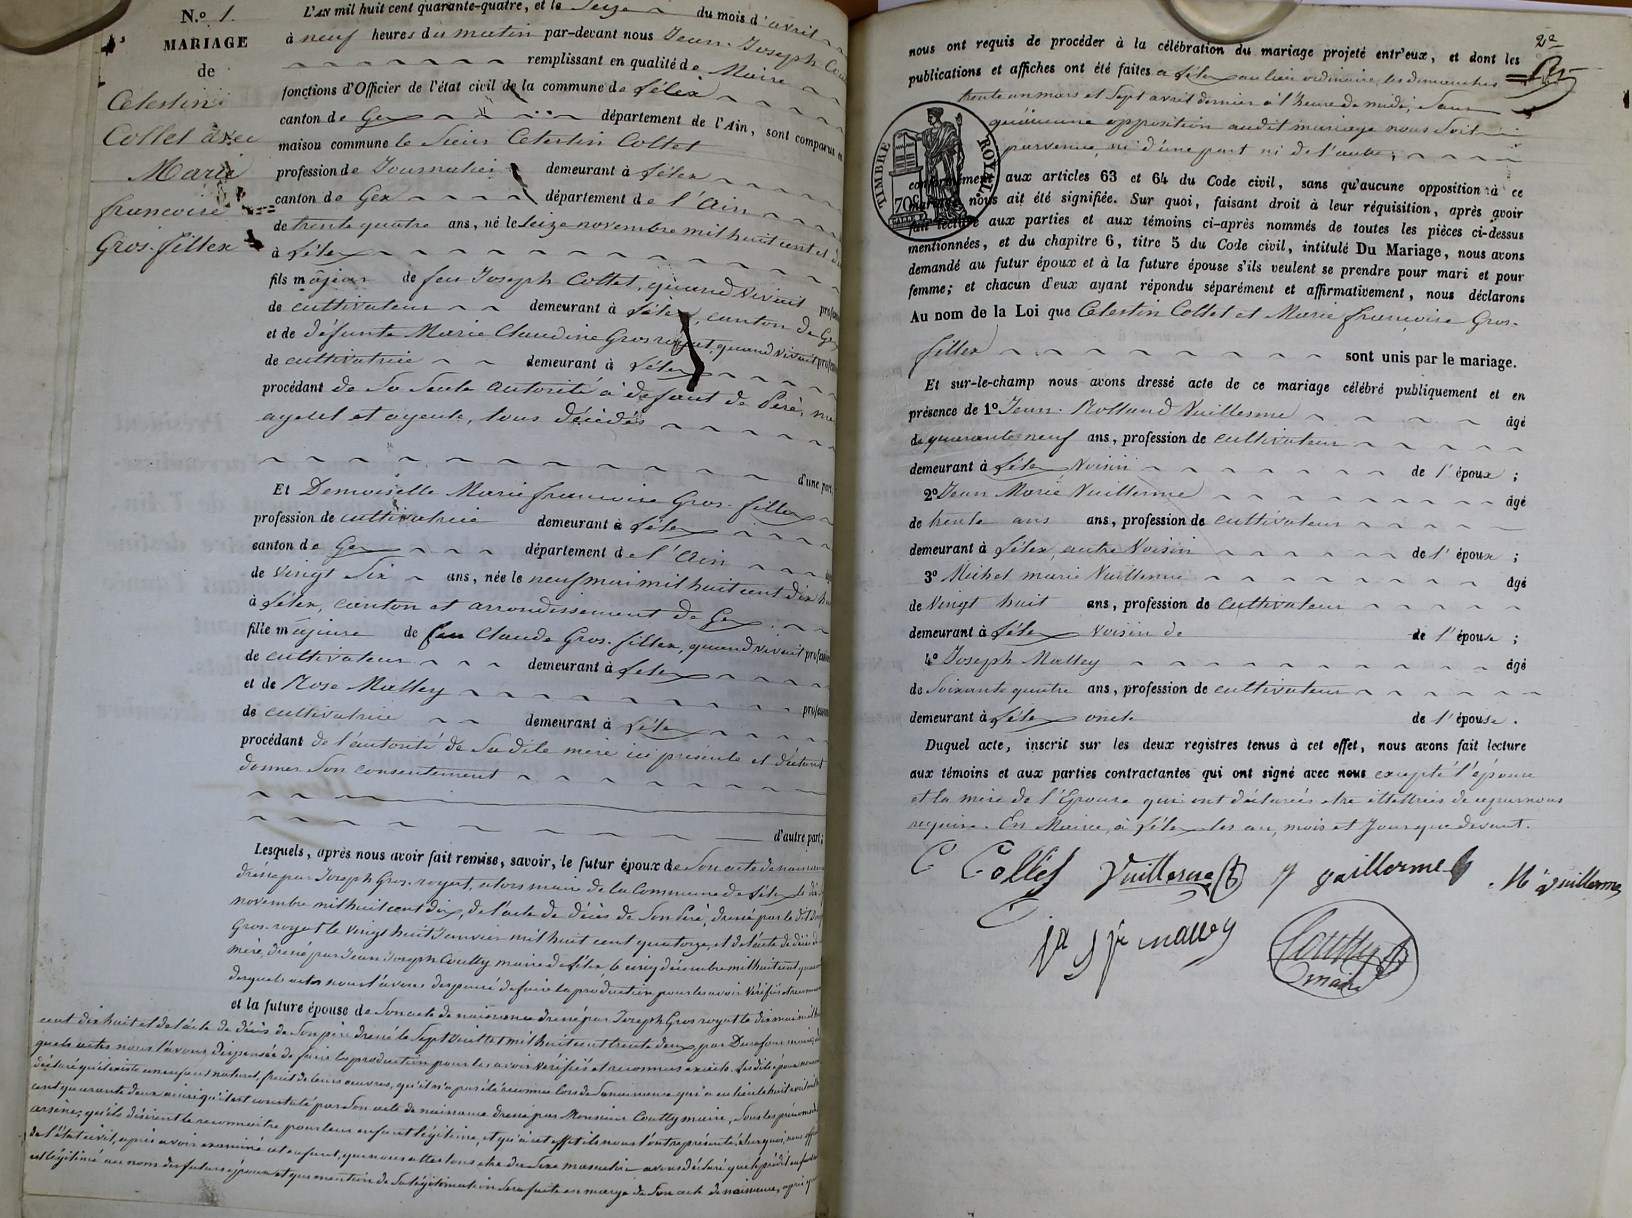 N.o 1.
MARIAGE
de
Celestin
Collet avec
Marie
francoise
Gros-fillex
L'AN mil huit cent quarante-quatre, et le Seize du mois d'avril
à neuf heures du matin par-devant nous Jean-Joseph
remplissant en qualité de Maire
fonctions d'Officier de l'état civil de la commune de Lélex
canton de Gex département de l'Ain, sont comparus en
maison commune le Sieur Celestin Collet
profession de Journalier demeurant à Lélex
canton de Gex département de l'Ain
de trente quatre ans, né le Seize novembre mil huit cent et
à Lélex
fils majeur de feu Joseph Collet, quand vivait
de cultivateur demeurant à Lélex, canton de Gex
et de défunte Marie Claudine Gros royat, quand vivait
de cultivatrice demeurant à Lélex
procédant de Sa Seule autorité à défaut de Père, mère
ayeul et ayeule, tous décédés
d'une part
Et Demoiselle Marie francoise Gros-fillex
profession de cultivatrice demeurant à Lélex
canton de Gex département de l'Ain
de vingt Six ans, née le neuf mai mil huit cent dix
à Lélex, canton et arrondissement de Gex
fille majeure de feu Claude Gros-fillex, quand vivait profession
de cultivateur demeurant à Lélex
et de Rose Malley profession
de cultivatrice demeurant à Lélex
procédant de l'autorité de Sa dite mère ici présente et déclarant
donner Son consentement
d'autre part;
Lesquels, après nous avoir fait remise, savoir, le futur époux de Son acte de naissance
dressé par Joseph Gros-royat, alors maire de la Commune de Lélex le
novembre mil huit cent dix, de l'acte de décès de Son Père, dressé par le dit
Gros-royat le vingt huit Janvier mil huit cent quatorze, et de l'acte de décès de
mère, dressé par Jean Joseph Coutty maire de Lélex le cinq décembre mil huit cent
desquels actes nous l'avons dispensé de faire la production pour les avoir vérifiés et reconnus
et la future épouse de Son acte de naissance dressé par Joseph Gros royat le dix mai mil
cent dix huit et de l'acte de décès de Son père dressé le Sept Juillet mil huit cent trente deux, par Dufour maire,
quels actes nous l'avons dispensée de faire la production pour les avoir vérifiés et reconnus exacts. Les dits époux
déclaré qu'il existe un enfant naturel, fruit de leurs œuvres, qu'il n'a pas été reconnu lors de Sa naissance qui a eu lieu le huit
cent quarante deux ainsi qu'il est constaté par Son acte de naissance dressé par Monsieur Coutty maire, Sous les prénoms de
arsene, qu'ils désirent le reconnaitre pour leur enfant légitime, et qu'à cet effet ils nous l'ont représenté; Sur quoi, nous officier
de l'état civil, après avoir examiné cet enfant, que nous attestons être du Sexe masculin avons déclaré que le prédit enfant
est légitimé au nom des futurs époux et que mention de Sa légitimation Sera faite en marge de Son acte de naissance, après
2e
nous ont requis de procéder à la célébration du mariage projeté entr'eux, et dont les
publications et affiches ont été faites à Lélex au lieu ordinaire, les dimanches
trente un mars et Sept avril dernier à l'heure de midi, Sans
qu'aucune opposition audit mariage nous Soit
parvenue, ni d'une part ni de l'autre;
TIMBRE ROYAL
70c
conformément aux articles 63 et 64 du Code civil, sans qu'aucune opposition à ce
mariage nous ait été signifiée. Sur quoi, faisant droit à leur réquisition, après avoir
fait lecture aux parties et aux témoins ci-après nommés de toutes les pièces ci-dessus
mentionnées, et du chapitre 6, titre 5 du Code civil, intitulé Du Mariage, nous avons
demandé au futur époux et à la future épouse s'ils veulent se prendre pour mari et pour
femme; et chacun d'eux ayant répondu séparément et affirmativement, nous déclarons
Au nom de la Loi que Celestin Collet et Marie françoise Gros-
fillex sont unis par le mariage.
Et sur-le-champ nous avons dressé acte de ce mariage célébré publiquement et en
présence de 1o Jean-Rolland Vuillerme âgé
de quarante neuf ans, profession de cultivateur
demeurant à Lélex Voisin de l'époux;
2o Jean Marie Vuillerme âgé
de trente ans ans, profession de cultivateur
demeurant à Lélex, autre Voisin de l'époux;
3o Michel marie Vuillerme âgé
de Vingt huit ans, profession de Cultivateur
demeurant à Lélex Voisin de de l'épouse;
4o Joseph Malley âgé
de Soixante quatre ans, profession de cultivateur
demeurant à Lélex oncle de l'épouse.
Duquel acte, inscrit sur les deux registres tenus à cet effet, nous avons fait lecture
aux témoins et aux parties contractantes qui ont signé avec nous excepté l'épouse
et la mère de l'Epouse qui ont déclarées être illettrées de ce par nous
requise. En Mairie, à Lélex les an, mois et Jour que devant.
C Collet Vuillerme J vuillerme M vuillerme
malley
Coutty
maire